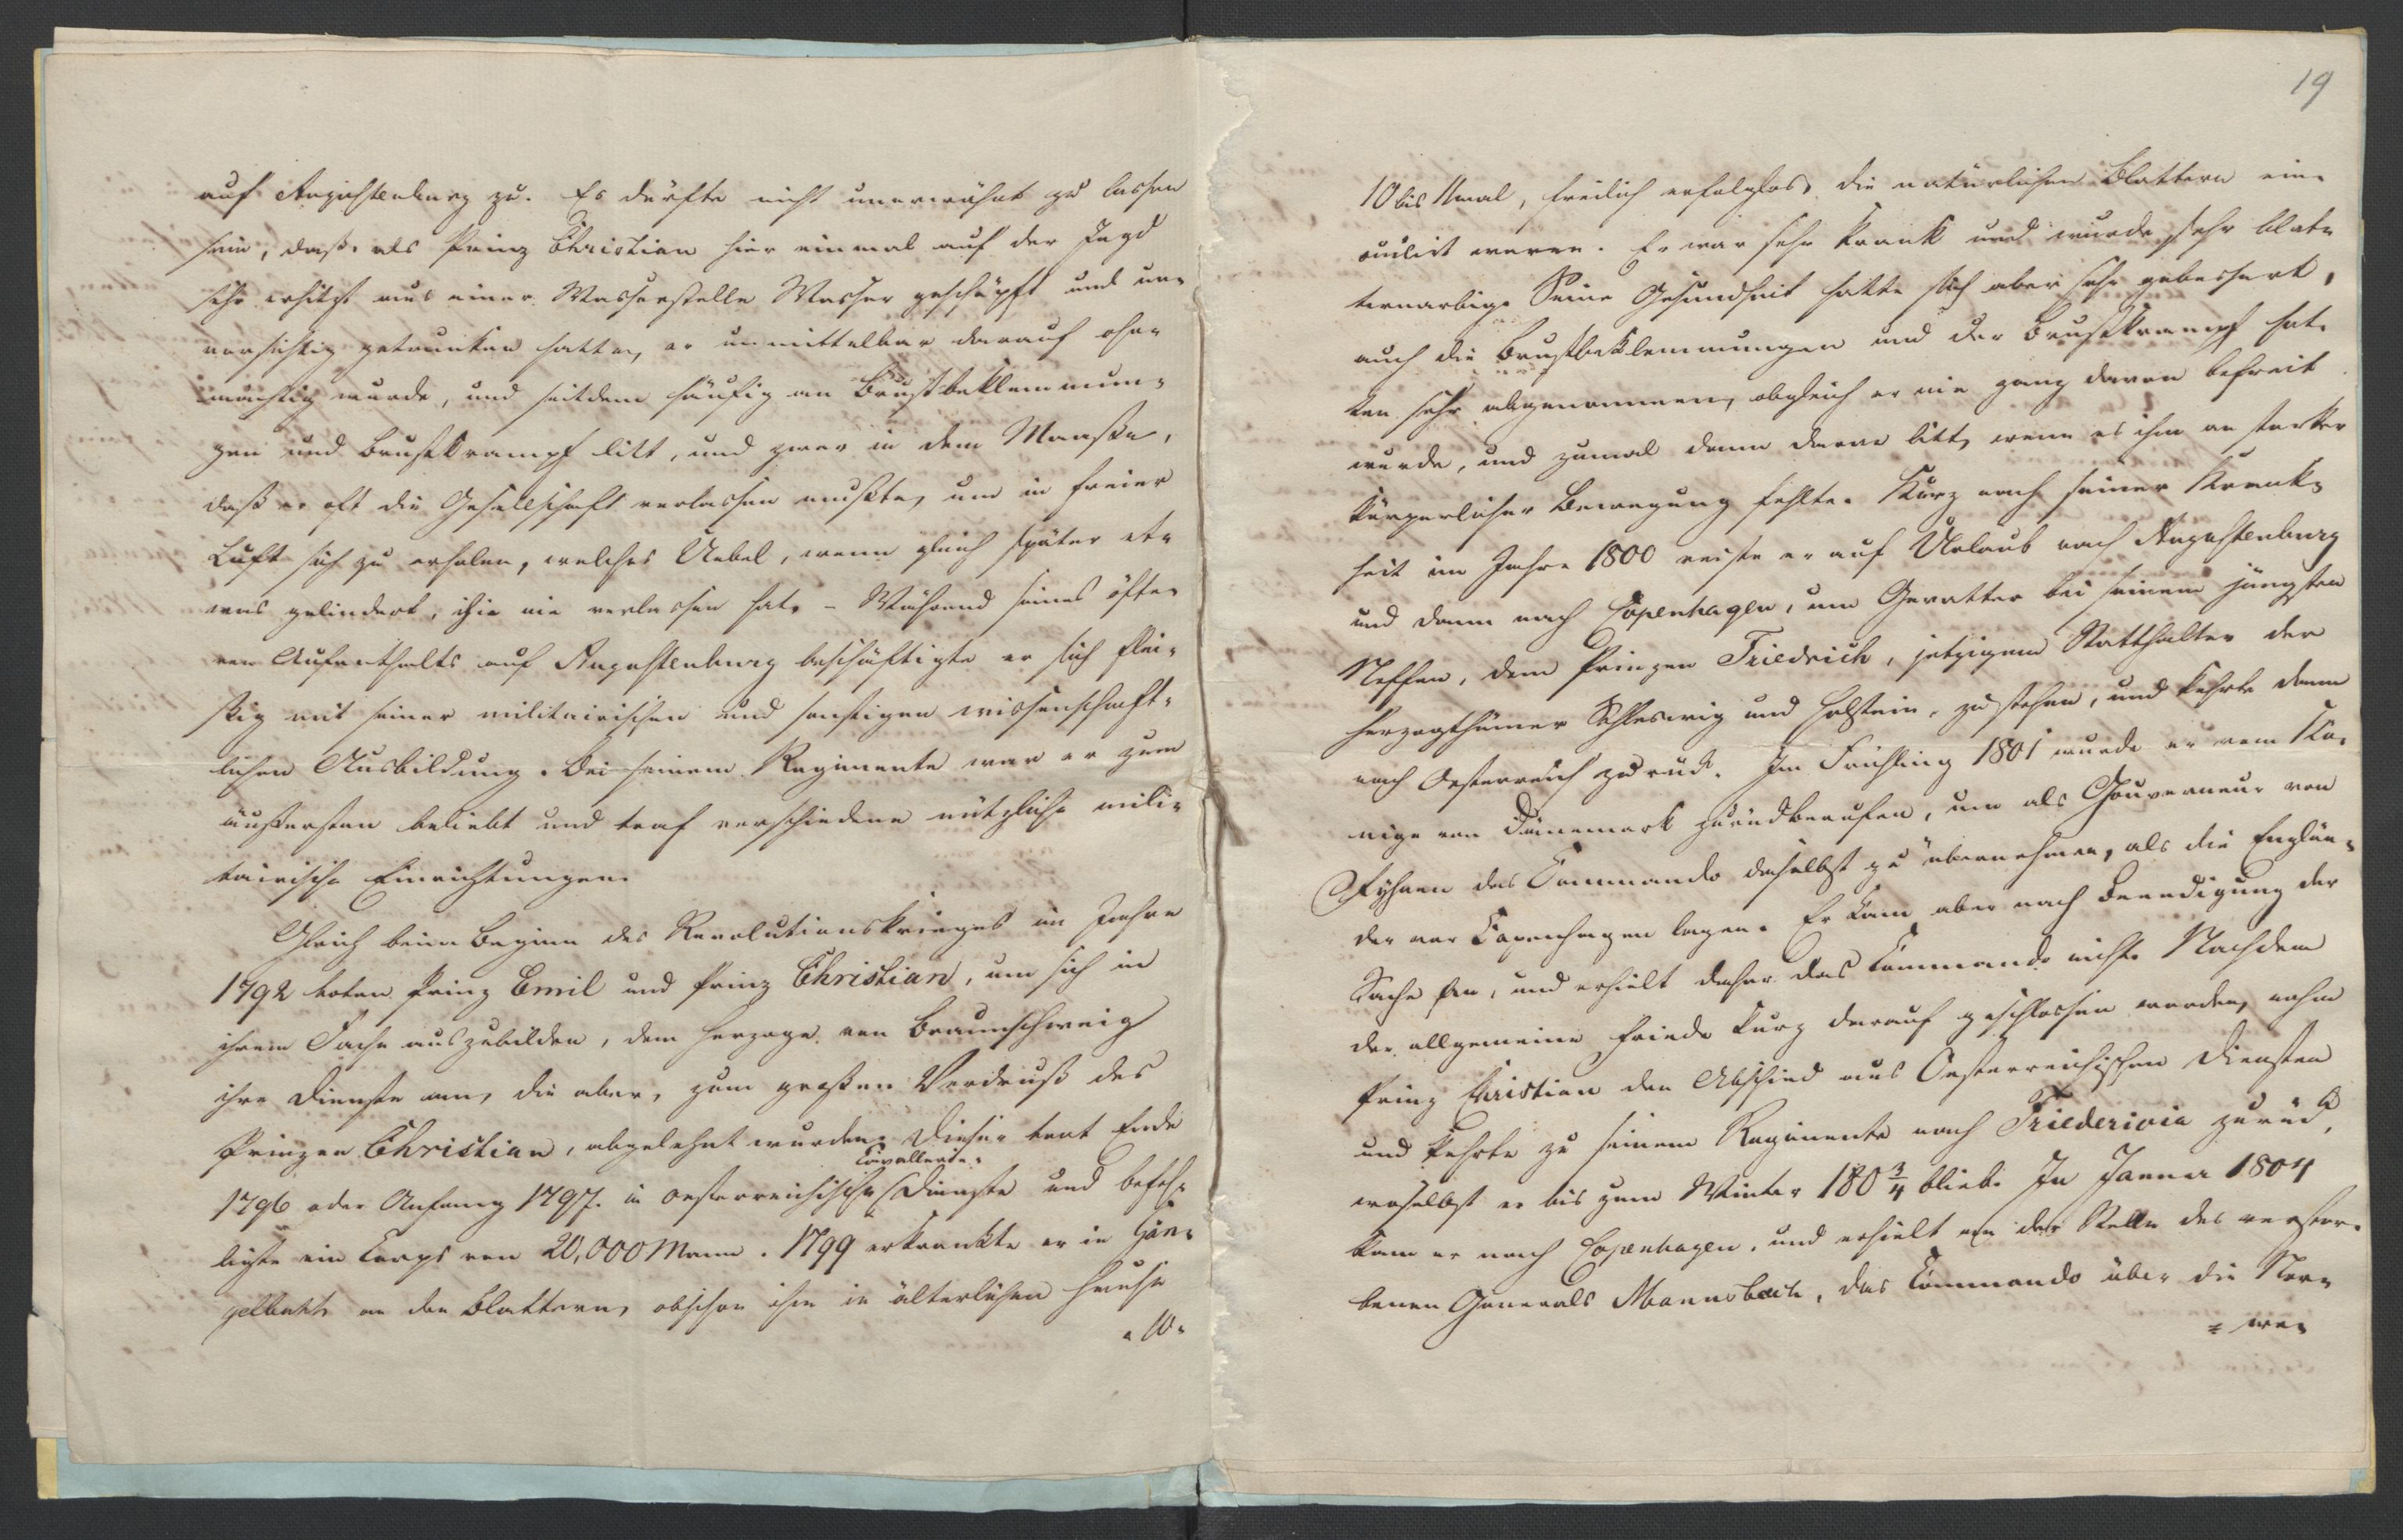 auf Augustenburg zu. Es dürfte nicht unerwähnt zu lassen
sein, daß, als Prinz Christian hier einmal auf der Jagd
sehr erhitzt aus einer Wasserstelle Wasser geschöpft und un-
vorsichtig getrunken hatte, er unmittelbar darauf ohn-
mächtig wurde, und seitdem häufig an Brustbeklemmun-
gen und Brustkrampf litt, und zwar in dem Maaße,
daß er oft die Gesellschaft verlassen mußte, um in freier
Luft sich zu erholen, welches Uebel, wenn gleich später et-
was gelindert, ihn nie verlassen hat. – Während seines öfte-
ren Aufenthalts auf Augustenburg beschäftigte er sich flei-
ßig mit seiner militairischen und sonstigen wissenschaft-
lichen Ausbildung. Bei seinem Regimente war er zum
äußersten beliebt und traf verschiedene nützliche mili-
tairische Einrichtungen.
Gleich beim Beginn des Revolutionskrieges im Jahre
1792 boten Prinz Emil und Prinz Christian, um sich in
ihrem Fache auszubilden, dem Herzoge von Braunschweig
ihre Dienste an, die aber, zum großen Verdruß des
Prinzen Christian, abgelehnt wurden. Dieser trat Ende
Cavallerie-
1796 oder Anfang 1797. in oesterreichische Dienste und befeh-
ligte ein Corps von 20,000 Mann. 1799 erkrankte er in
an den Blattern, obschon ihm in älterlichen Hause
- 10-
19
10 bis 11mal, freilich erfolglos, die natürlichen Blattern ein-
oculirt waren. Er war sehr krank und wurde sehr blat-
ternarbig. Seine Gesundheit hatte sich aber sehr gebessert,
auch die Brustbeklemmungen und der Brustkrampf hat-
ten sehr abgenommen, obgleich er nie ganz davon befreit
wurde, und zumal dann daran litt, wenn es ihm an starker
körperlicher Bewegung fehlte. Kurz nach seiner Krank-
heit im Jahre 1800 reiste er auf Urlaub nach Augustenburg
und dann nach Copenhagen, um Gevatter bei seinem jüngsten
Neffen, dem Prinzen Friedrich, jetzigem Statthalter der
Herzogthümer Schleswig und Holstein, zu stehen, und kehrte dann
nach Oesterreich zurück. Im Frühling 1801 wurde er vom Kö-
nige von Dänemark zurückberufen, um als Gouverneur von
Fyhnen das Commando daselbst zu übernehmen, als die Englän-
der vor Copenhagen lagen. Er kam aber nach Beendigung der
Sache an, und erhielt daher das Commando nicht. Nachdem
der allgemeine Friede kurz darauf geschlossen worden, nahm
Prinz Christian den Abschied aus Oesterreichischen Diensten
und kehrte zu seinem Regimente nach Friedericia zurück,
woselbst er bis zum Winter 180 3/4 blieb. Im Januar 1804
kam er nach Copenhagen, und erhielt an der Stelle des verstor-
benen Generals Mannsbach, das Commando über die Nor-
= we-